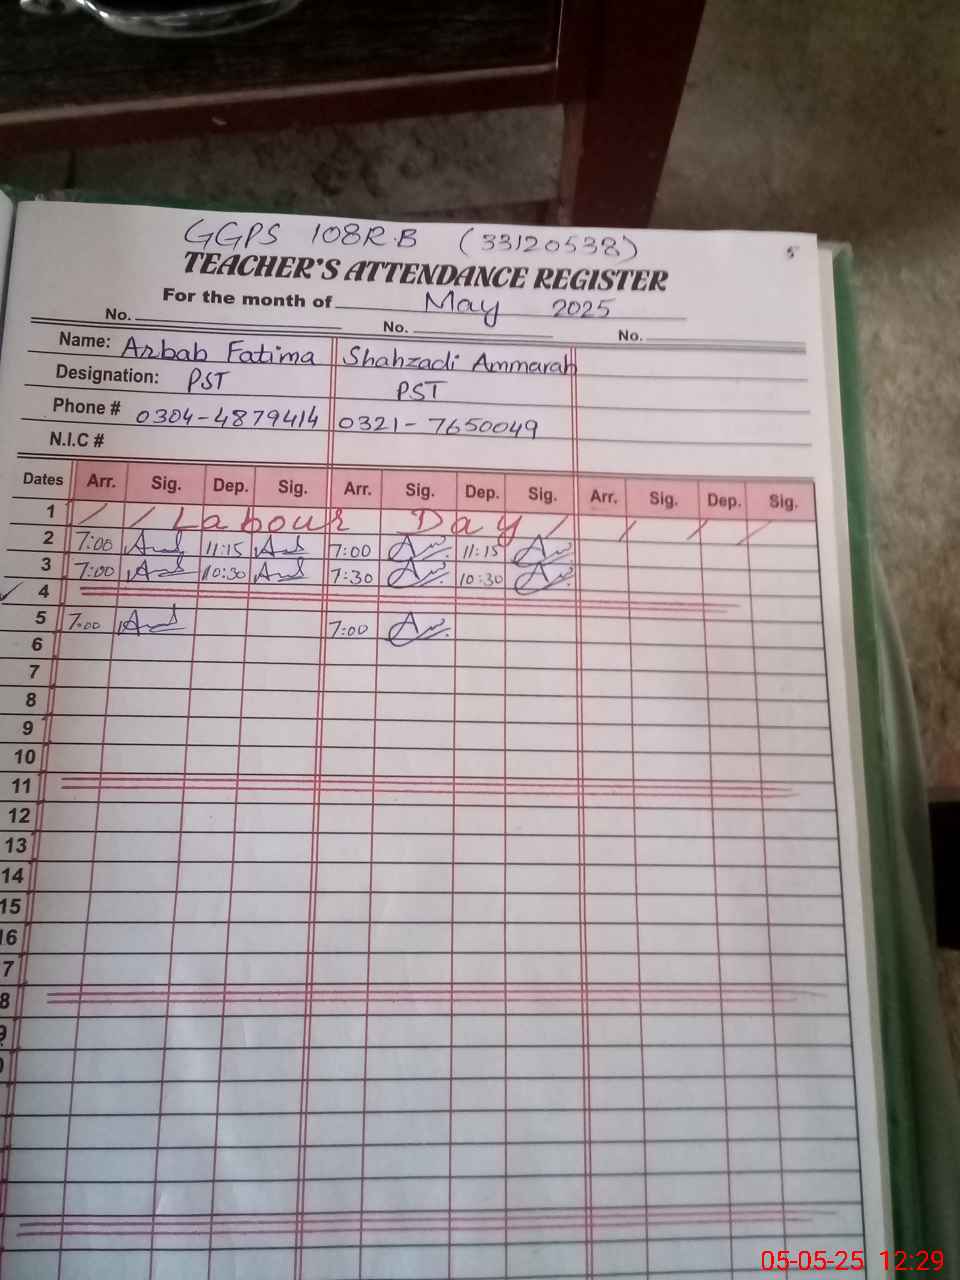 GGPS 108R.B (33120538) 5
TEACHER'S ATTENDANCE REGISTER
For the month of May 2025
No. No. No.
Name: Arbab Fatima Shahzadi Ammarah
Designation: PST PST
Phone # 0304-4879414 0321-7650049
N.I.C #
Dates Arr. Sig. Dep. Sig. Arr. Sig. Dep. Sig. Arr. Sig. Dep. Sig.
1 Labour Day
2 7:00 11:15 7:00 11:15
3 7:00 10:30 7:30 10:30
4
5 7.00 7:00
6
7
8
9
10
11
12
13
14
15
16
7
8
05-05-25 12:29